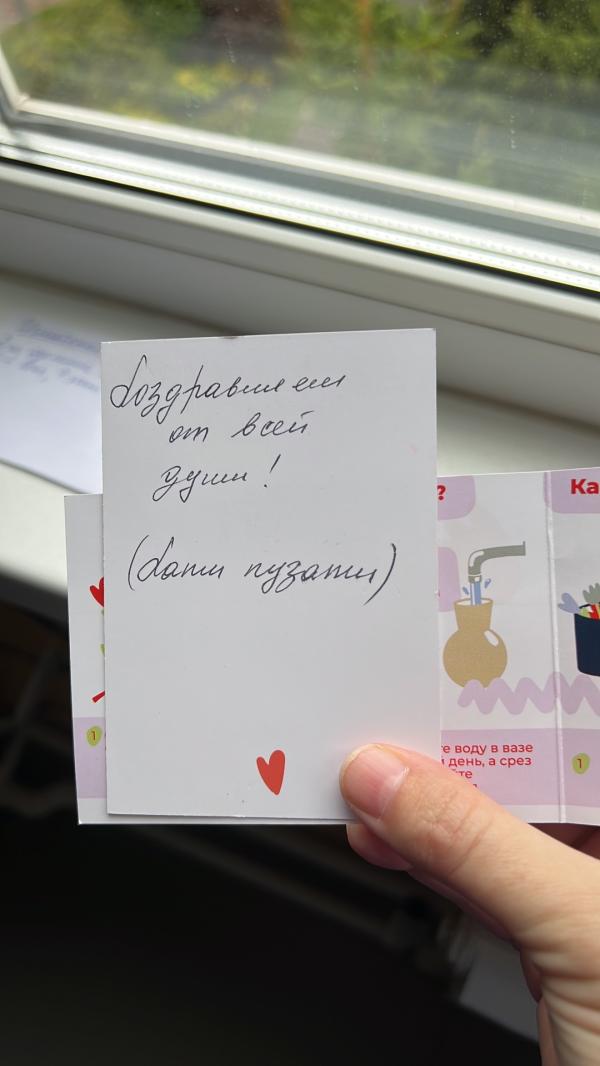 Поздравляем
от всей
души!
(Пати пузати)
?
Ка
1
те воду в вазе
й день, а срез
1